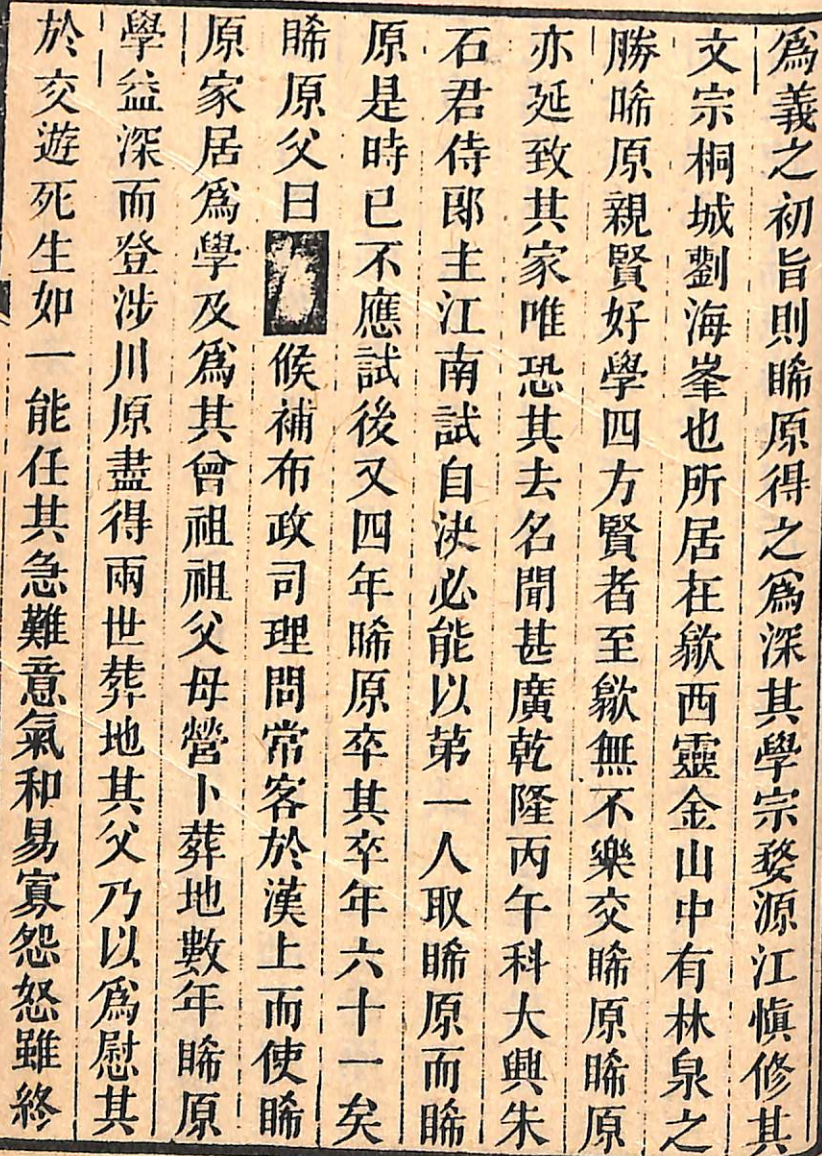 爲義之初旨則晞原得之爲深其學宗婺源江愼修其
文宗桐城劉海峯也所居在歙西靈金山中有林泉之
勝晞原親賢好學四方賢者至歙無不樂交晞原晞原
亦延致其家唯恐其去名聞甚廣乾隆丙午科大興朱
石君侍郎主江南試自決必能以第一人取晞原而晞
原是時已不應試後又四年晞原卒其卒年六十一矣
晞原父曰候補布政司理問常客於漢上而使晞
原家居爲學及爲其曾祖祖父母營卜葬地數年晞原
學益深而登涉川原盡得兩世葬地其父乃以爲慰其
於交遊死生如一能任其急難意氣和易寡怨怒雖終